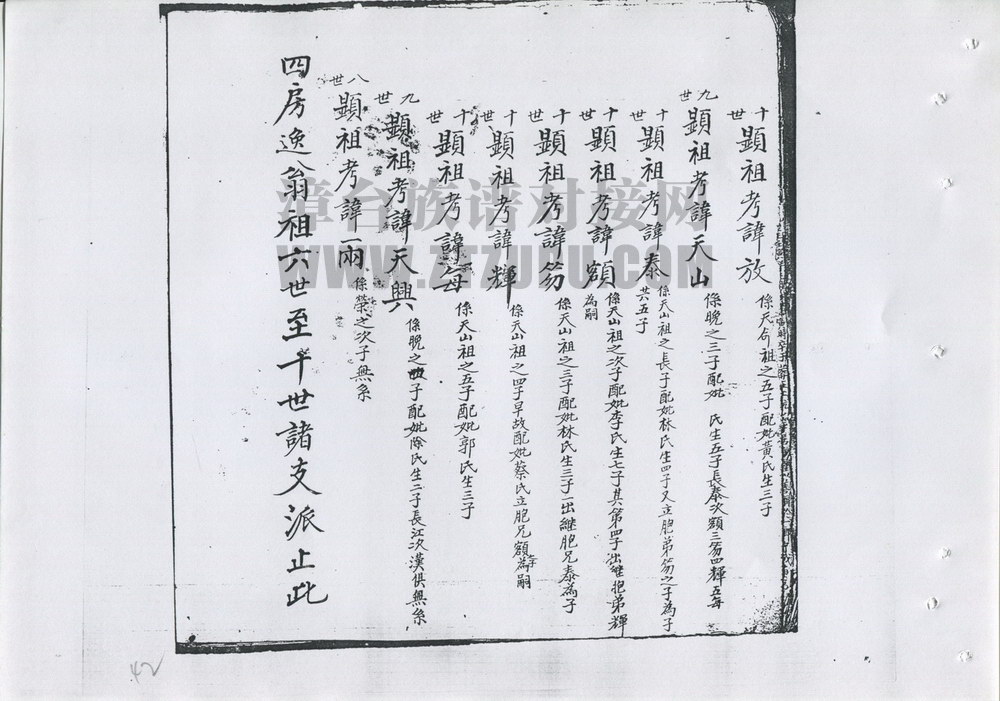 十世 顯祖考諱放 係天命祖之五子配妣黃氏生三子
九世 顯祖考諱天山 係晚之三子配妣 氏生五子長泰次額三笏四輝五每
十世 顯祖考諱泰 係天山祖之長子配妣林氏生四子又立胞弟笏之子為子共五子
十世 顯祖考諱額 係天山祖之次子配妣李氏生七子其第四子出繼胞弟輝為嗣
十世 顯祖考諱笏 係天山祖之三子配妣林氏生三子一出繼胞兄泰為子
十世 顯祖考諱輝 係天山祖之四子早故配妣蔡氏立胞兄額之子為嗣
十世 顯祖考諱每 係天山祖之五子配妣郭氏生三子
九世 顯祖考諱天興 係晚之四子配妣除氏生二子長江次漢俱無系
八世 顯祖考諱一兩 係榮之次子無系
四房逸翁祖六世至十世諸支派止此
漳台族谱对接网
WWW.ZZZUPU.COM
42